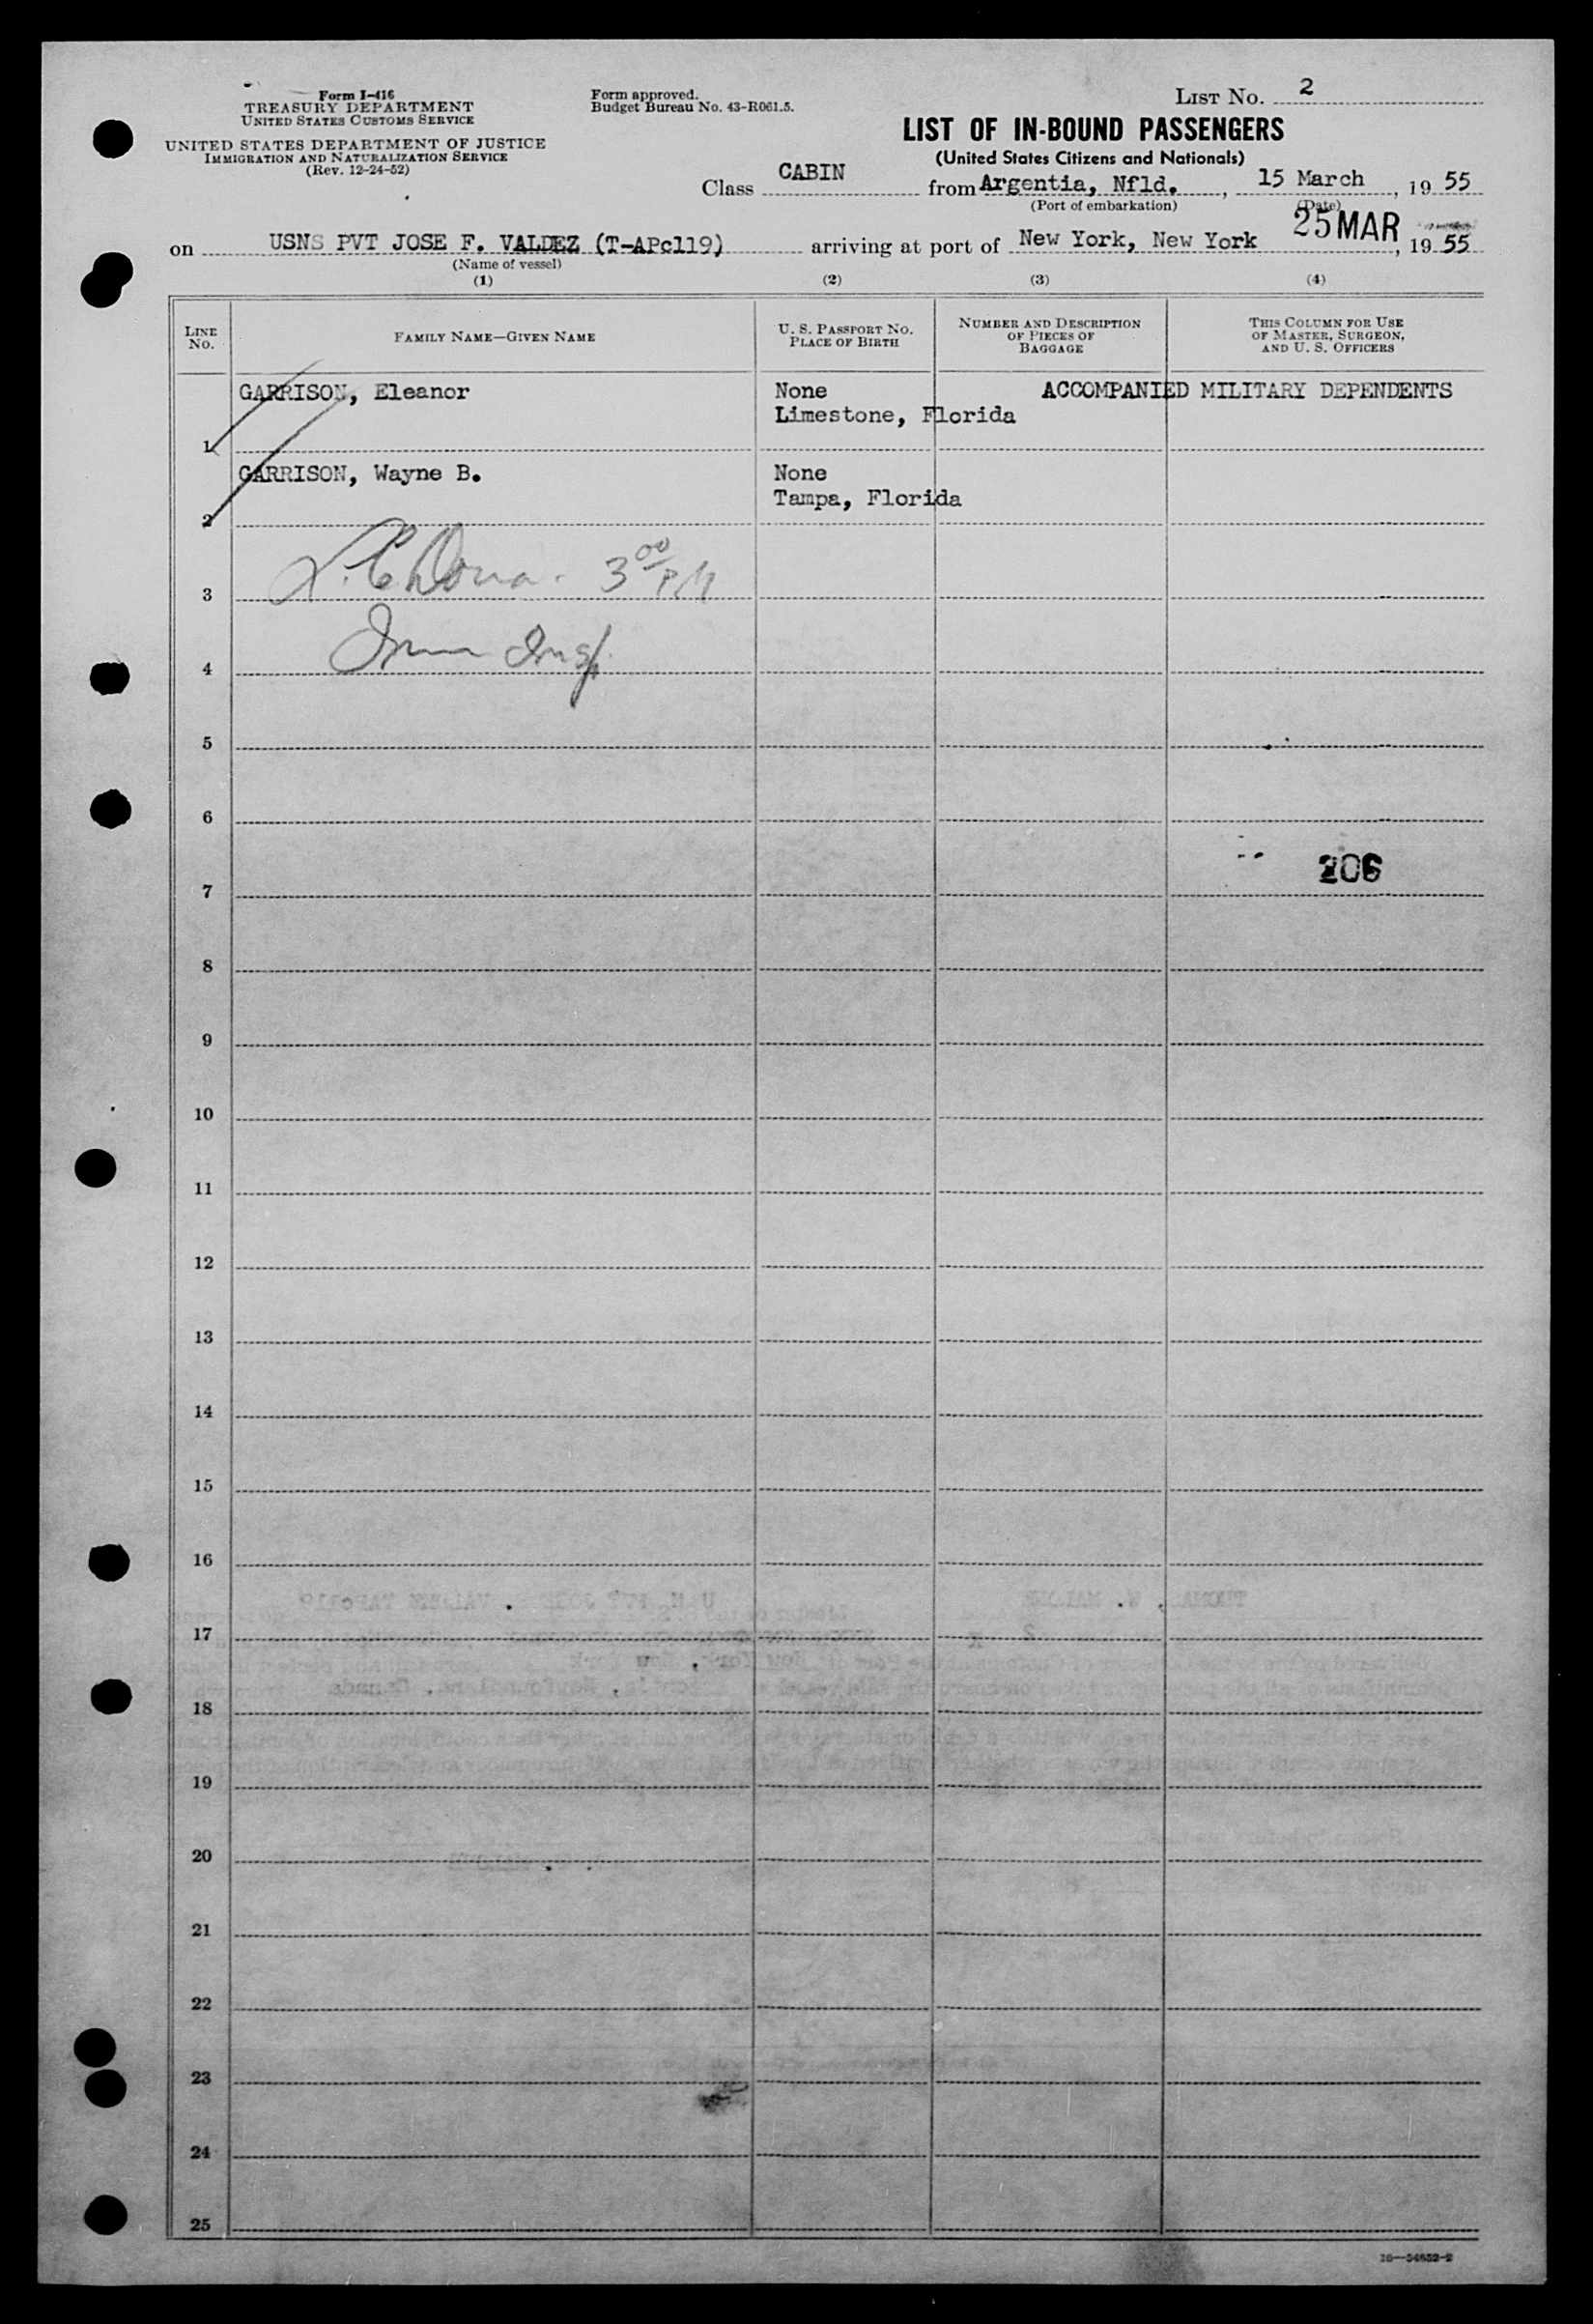 Form I-416
TREASURY DEPARTMENT
UNITED STATES CUSTOMS SERVICE
UNITED STATES DEPARTMENT OF JUSTICE
IMMIGRATION AND NATURALIZATION SERVICE
(Rev. 12-24-52)
Form approved.
Budget Bureau No. 43-R061.5.
LIST NO. 2
LIST OF IN-BOUND PASSENGERS
(United States Citizens and Nationals)
Class CABIN from Argentia, Nfld., 15 March, 19 55
(Port of embarkation) (Date)
on USNS PVT JOSE F. VALDEZ (T-APc119) arriving at port of New York, New York 25 MAR, 19 55
(Name of vessel)
(1) (2) (3) (4)
LINE NO.
FAMILY NAME—GIVEN NAME
U. S. PASSPORT NO.
PLACE OF BIRTH
NUMBER AND DESCRIPTION
OF PIECES OF
BAGGAGE
THIS COLUMN FOR USE
OF MASTER, SURGEON,
AND U. S. OFFICERS
GARRISON, Eleanor None ACCOMPANIED MILITARY DEPENDENTS
Limestone, Florida
1
GARRISON, Wayne B. None
Tampa, Florida
2
3 3 00 PM
4
5
6
206
7
8
9
10
11
12
13
14
15
16
17
18
19
20
21
22
23
24
25